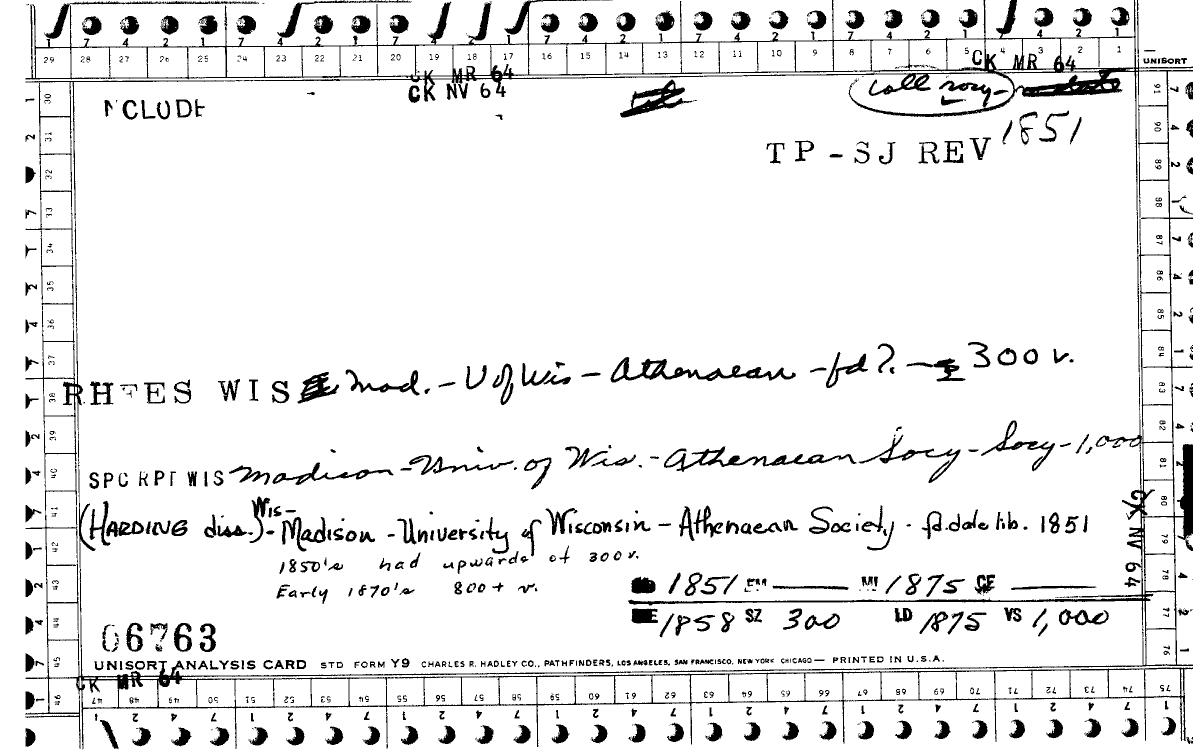 7 4 2 1 7 4 2 1 7 4 2 1 7 4 2 1 7 4 2 1 7 4 2 1
29 28 27 26 25 24 23 22 21 20 19 18 17 16 15 14 13 12 11 10 9 8 7 6 5 4 3 2 1 UNISORT
CK MR 64 CK MR 64
CK NV 64 call socy
NCLUDE
1851
TP-SJ REV
RHEES WIS Mad. - U of Wis - Athenaean - fd?. - 300 v.
SPC RPT WIS Madison - Univ. of Wis. - Athenaean Socy - Socy - 1,000
(HARDING diss.) - Wis - Madison - University of Wisconsin - Athenaean Society - fd. date lib. 1851
1850's had upwards of 300 v.
Early 1870's 800+ v.
1851 EM MI 1875 CE
1858 SZ 300 LD 1875 VS 1,000
CK NV 64
06763
UNISORT ANALYSIS CARD STD FORM Y9 CHARLES R. HADLEY CO., PATHFINDERS, LOS ANGELES, SAN FRANCISCO, NEW YORK CHICAGO — PRINTED IN U.S.A.
CK MR 64
47 48 49 50 51 52 53 54 55 56 57 58 59 60 61 62 63 64 65 66 67 68 69 70 71 72 73 74 75